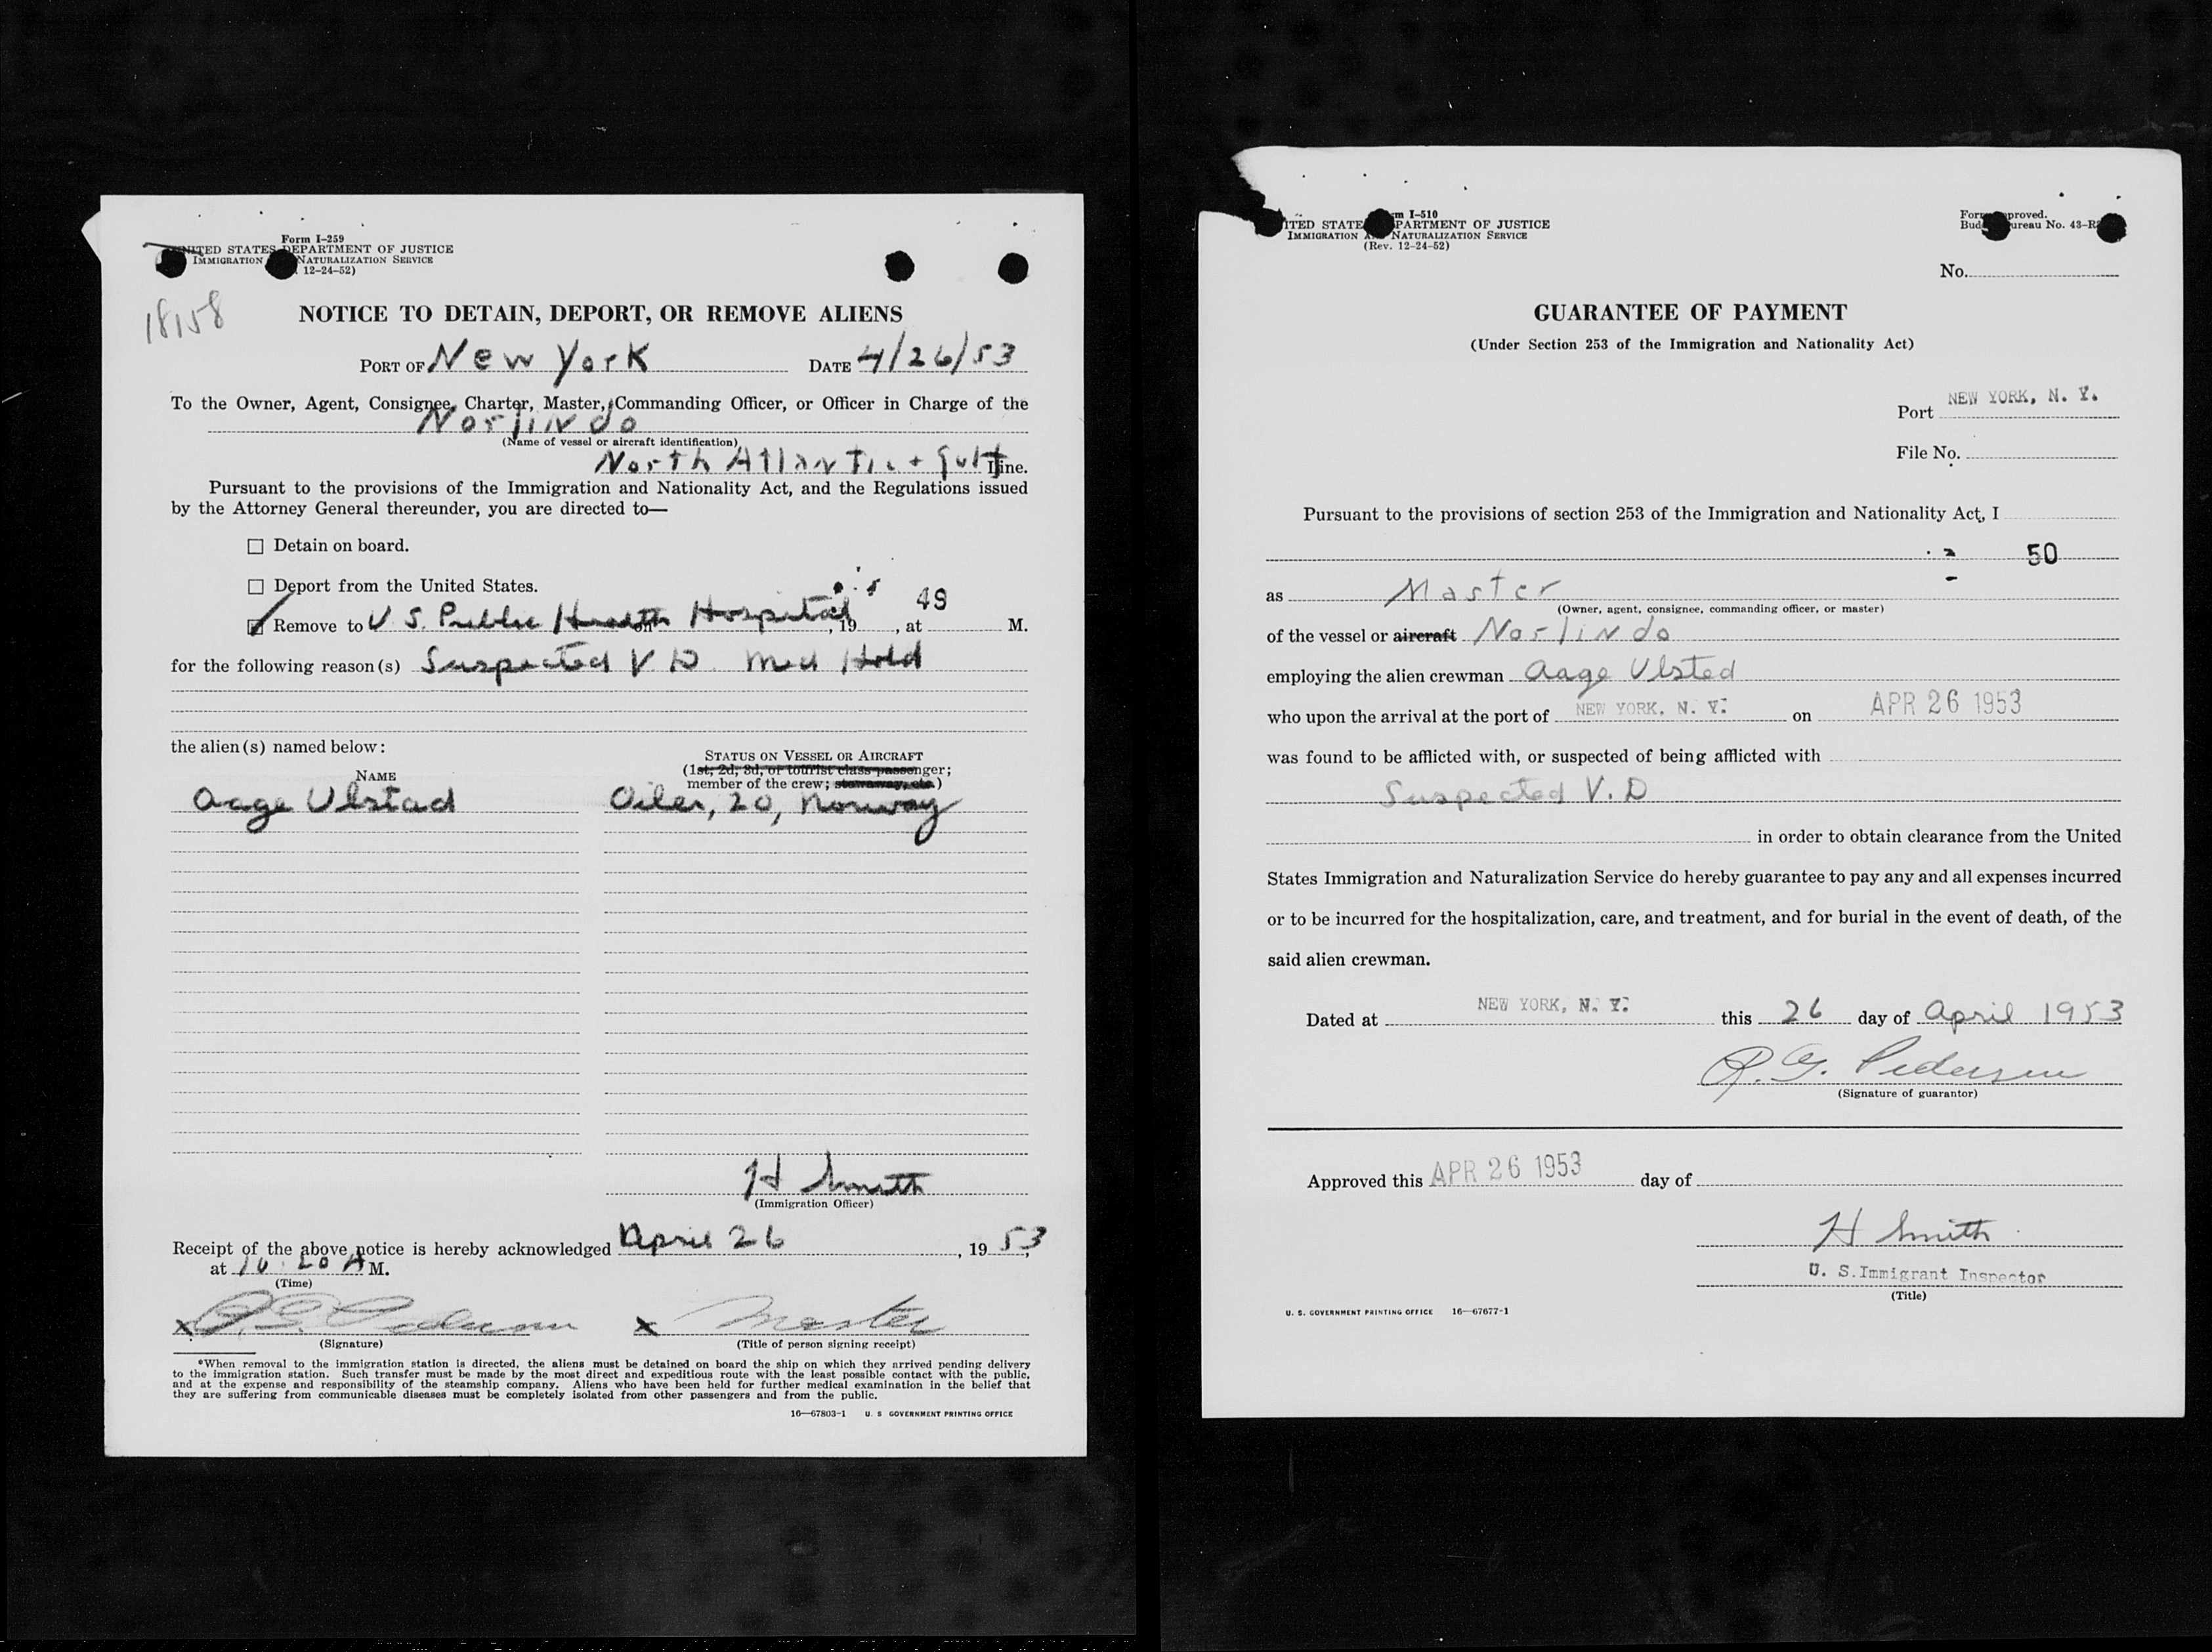 Form I-259
UNITED STATES DEPARTMENT OF JUSTICE
IMMIGRATION NATURALIZATION SERVICE
12-24-52)
18158
NOTICE TO DETAIN, DEPORT, OR REMOVE ALIENS
PORT OF New York DATE 4/26/53
To the Owner, Agent, Consignee, Charter, Master, Commanding Officer, or Officer in Charge of the
Norlindo
(Name of vessel or aircraft identification)
North Atlantic + Gulf Line.
Pursuant to the provisions of the Immigration and Nationality Act, and the Regulations issued
by the Attorney General thereunder, you are directed to—
☐ Detain on board.
☐ Deport from the United States.
49
Remove to U S. Public Health Hospital on , 19 , at M.
for the following reason(s) Suspected V D. Med Hold
the alien(s) named below:
STATUS ON VESSEL OR AIRCRAFT
(1st, 2d, 3d, or tourist class passenger;
NAME
member of the crew; stowaway, etc.)
Aage Ulstad Oiler, 20, Norway
H Smith
(Immigration Officer)
Receipt of the above notice is hereby acknowledged April 26, 1953,
at 10:20 A M.
(Time)
x Pedersen x Master
(Signature) (Title of person signing receipt)
*When removal to the immigration station is directed, the aliens must be detained on board the ship on which they arrived pending delivery
to the immigration station. Such transfer must be made by the most direct and expeditious route with the least possible contact with the public,
and at the expense and responsibility of the steamship company. Aliens who have been held for further medical examination in the belief that
they are suffering from communicable diseases must be completely isolated from other passengers and from the public.
16—67803-1 U. S GOVERNMENT PRINTING OFFICE
m I-510
ITED STATE PARTMENT OF JUSTICE
IMMIGRATION A NATURALIZATION SERVICE
(Rev. 12-24-52)
Form proved.
Bud ureau No. 43-R
No.
GUARANTEE OF PAYMENT
(Under Section 253 of the Immigration and Nationality Act)
Port NEW YORK, N. Y.
File No.
Pursuant to the provisions of section 253 of the Immigration and Nationality Act, I
50
as Master
(Owner, agent, consignee, commanding officer, or master)
of the vessel or aircraft Norlindo
employing the alien crewman Aage Ulsted
who upon the arrival at the port of NEW YORK, N. Y. on APR 26 1953
was found to be afflicted with, or suspected of being afflicted with
Suspected V.D
in order to obtain clearance from the United
States Immigration and Naturalization Service do hereby guarantee to pay any and all expenses incurred
or to be incurred for the hospitalization, care, and treatment, and for burial in the event of death, of the
said alien crewman.
Dated at NEW YORK, N. Y. this 26 day of April 1953
R. G. Pedersen
(Signature of guarantor)
Approved this APR 26 1953 day of
H Smith
U. S. Immigrant Inspector
(Title)
U. S. GOVERNMENT PRINTING OFFICE 16—67677-1